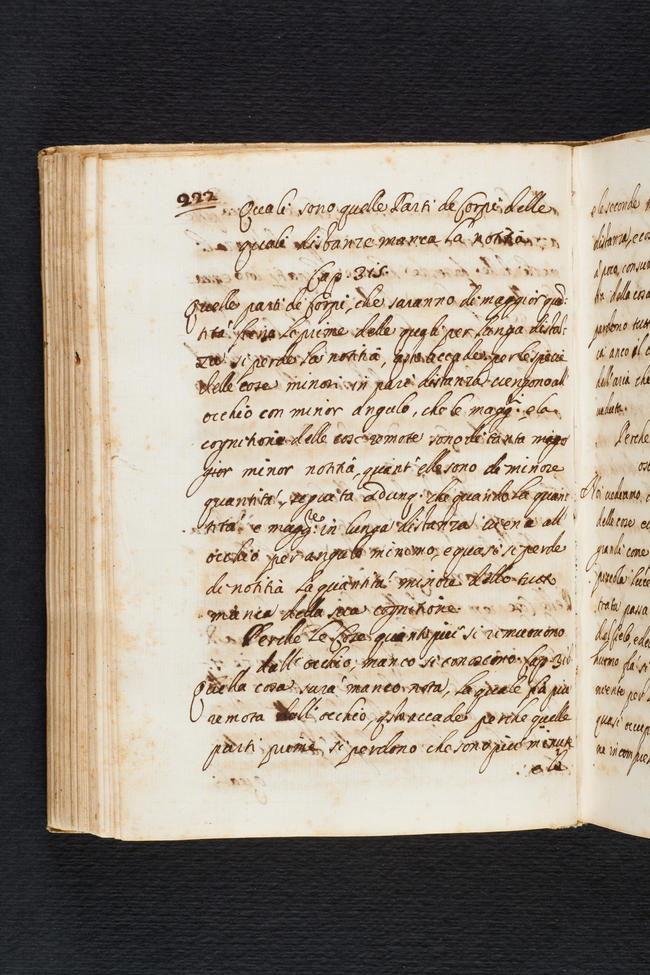 222
Quali sono quelle Parti de Corpi delle
quali distanze manca la notitia
Cap. 315.
Quelle parti de Corpi, che saranno di maggior quā:
tità fieno le prime delle quali per lunga distan:
za si perde la notitia, accade per le specie
delle cose minori in pari distanza uengono all'
occhio con minor angulo, che le magg.ri e la
cognitione delle cose remote sono di tanta
minor notitia, quant'elle sono di minore
quantità, seguita adunq. che quando la quan:
tità e magg.re in lunga distanza uiene all'
occhio per angulo minimo, e quasi si perde
di notitia la quantità minore delle
manca della sua cognitione
Perche le Cose quanto più si rimuouono
dall'occhio, manco si conoscono Cap. 316
Quella cosa sarà manco nota, la quale fia più
remota dall'occhio, accade perche quelle
parti prime si perdono che sono più minute
e la
e le seconde
distanza, e
à poco, consu
tia della cosa
perdono tutte
anco il
dell'aria che
ueduta.
Perche
Noi uedremo
delle cose
grandi come
picciola luce
trata passa
del Cielo e del
huomo già si
niente per
quasi occup
na incom